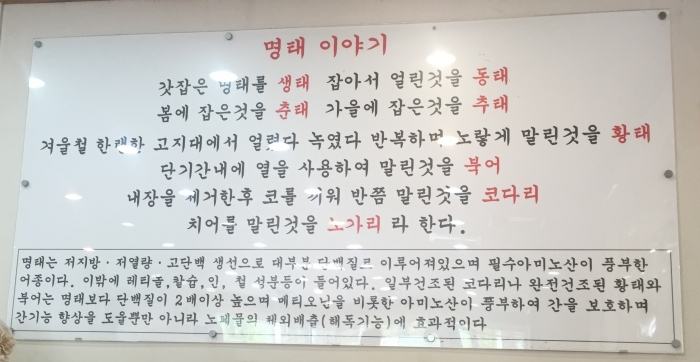 명태 이야기
갓잡은 명태를 생태 잡아서 얼린것을 동태
봄에 잡은것을 춘태 가을에 잡은것을 추태
겨울철 한랭한 고지대에서 얼렸다 녹였다 반복하며 노랗게 말린것을 황태
단기간내에 열을 사용하여 말린것을 북어
내장을 제거한후 코를 끼워 반쯤 말린것을 코다리
치어를 말린것을 노가리 라 한다.
명태는 저지방·저열량·고단백 생선으로 대부분 단백질로 이루어져있으며 필수아미노산이 풍부한
어종이다. 이밖에 레티놀,칼슘,인, 철 성분등이 들어있다. 일부건조된 코다리나 완전건조된 황태와
북어는 명태보다 단백질이 2배이상 높으며 메티오닌을 비롯한 아미노산이 풍부하여 간을 보호하며
간기능 향상을 도울뿐만 아니라 노폐물의 체외배출(해독기능)에 효과적이다